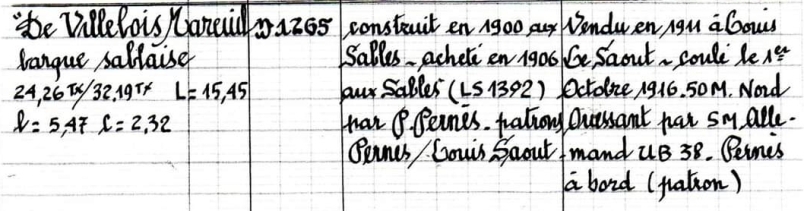 "De Villebois Mareuil
barque sablaise
24,26 Tx/32,19 Tx L=15,45
l=5,47 C=2,32
D1265
construit en 1900 aux
Salles - acheté en 1906
aux Sables (LS 1392)
par P. Pernès - patrons
Pernes/Louis Saout
Vendu en 1911 à Louis
Le Saout - coulé le 1er
Octobre 1916. 50 M. Nord
Ouessant par S M Alle-
mand UB 38. Pernes
à bord (patron)